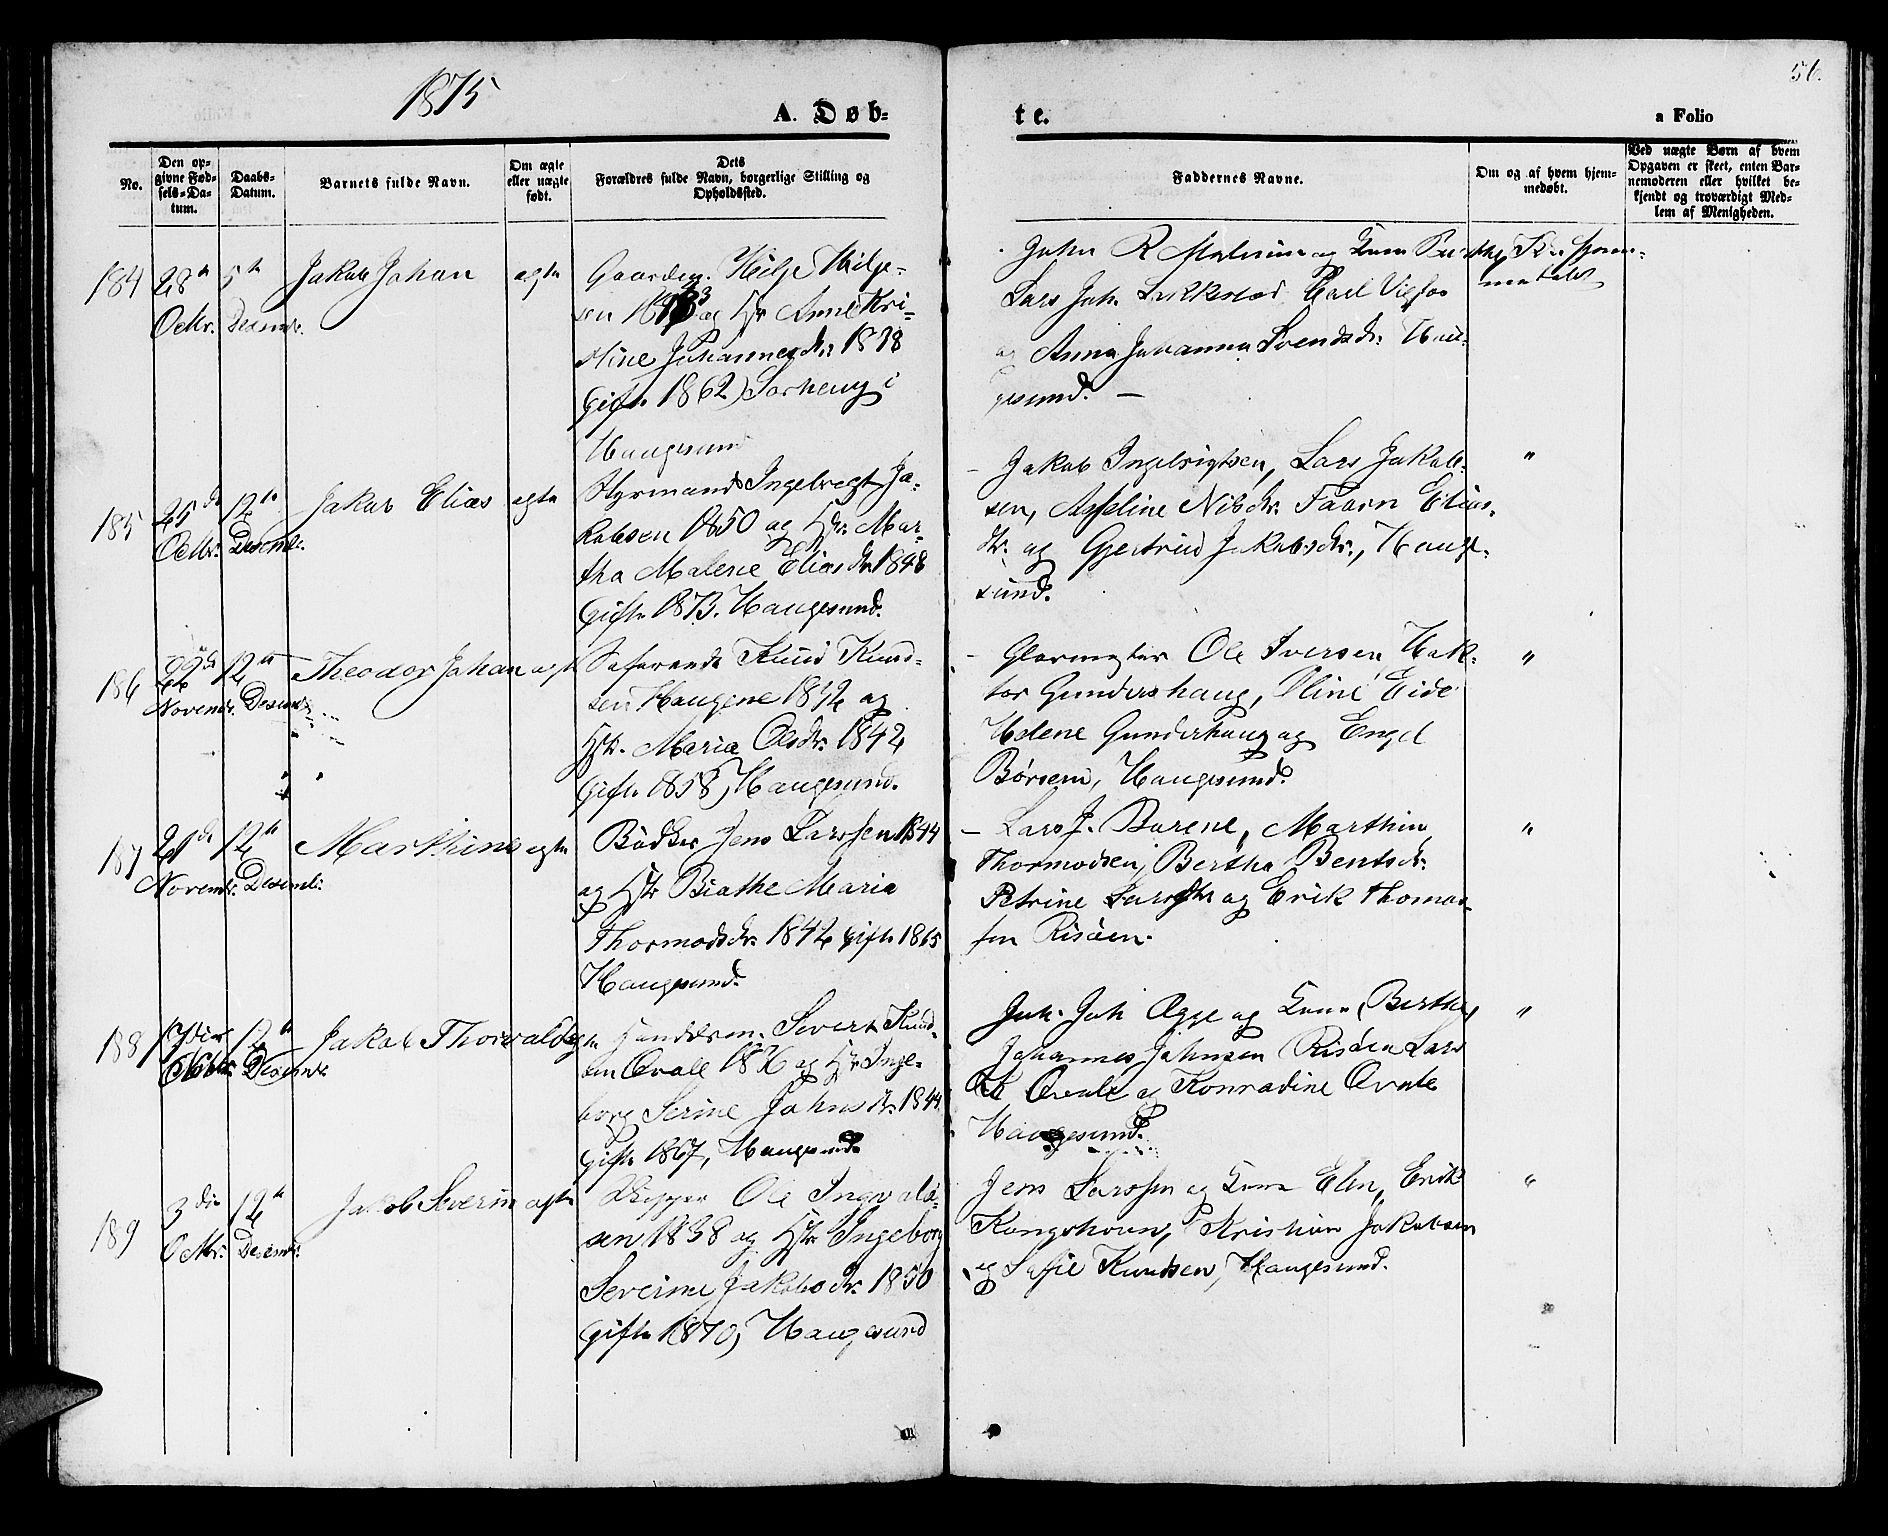 1875
56.
A. Døb-
te.
a Folio
No.
Den op-
givne Fød-
sels-Da-
tum.
Daabs-
Datum.
Barnets fulde Navn.
Om ægte
eller uægte
født.
Dets
Forældres fulde Navn, borgerlige Stilling og
Opholdssted.
Faddernes Navne.
Om og af hvem hjem-
medøbt.
Ved uægte Børn af hvem
Opgaven er skeet, enten Bar-
nemoderen eller hvilket be-
kjendt og troværdigt Med-
lem af Menigheden.
184
28de
Octbr.
5te
Desembr.
Jakob Johan
ægte
Gaardsm. Helge Helge-
sen 1833 og Hstr Anne Kri-
stine Johannesdtr. 1838
Gifte 1862) Sørhaug i
Haugesund
John R
Lars Joh.
og Anna Johanna Svendsdtr. Hau-
gesund. —
185
25de
Octbr.
12te
Desembr.
Jakob Elias
ægte
Styrmand Ingebregt Ja-
kobsen 1850 og Hstr. Mar-
tha Malene Eliasdtr 1848
Gifte 1873. Haugesund.
– Jakob Ingebrigtsen, Lars Jakob-
sen, Nilsdtr. Elias-
dtr. og Gjertrud Jakobsdtr., Hauge-
sund.
"
186
22de
Novembr.
12te
Desembr.
Theodor Johan
ægte
Søfarende Knud Knud-
sen Haugene 1842 og
Hstr. Maria Olsdtr. 1842
Gifte 1858, Haugesund.
– Glarmester Ole Iversen Hak-
tor Gundershaug, Oline Eide
Helene Gundershaug og Engel
Børsem, Haugesund.
"
187
21de
Novembr.
12te
Desembr.
Marthine
ægte
Bødker Jens Larssen 1844
og Hstr Beathe Maria
Thormodsdtr. 1842 gifte 1865
Haugesund.
– Lars J. Marthin
Thormodsen, Bertha Bentsdtr.
Petrine Larsdtr og Erik Thomas-
sen Risøen.
"
188
12te
Desembr.
Jakob Thorvald
ægte
Handelsm. Severt Knud-
sen Qvale og Hstr Inge-
borg Serine Johnsdtr. 1844
Gifte 1867, Haugesund
Joh. Joh.Ægge og Kone Berthe,
Johannes Johnsen Risøen Lars
K Qvale og Konradine Qvale
Haugesund.
"
189
3die
Octbr.
12te
Desembr.
Jakob Severin
ægte
Skipper Ole Ingvald-
sen 1838 og Hstr Ingeborg
Severine Jakobsdtr. 1850
Gifte 1870, Haugesund
Jens Larssen og Kone Elen, Erik
Kongshavn, Kristian Jakobsen
og Sofie Knudsen, Haugesund.
"